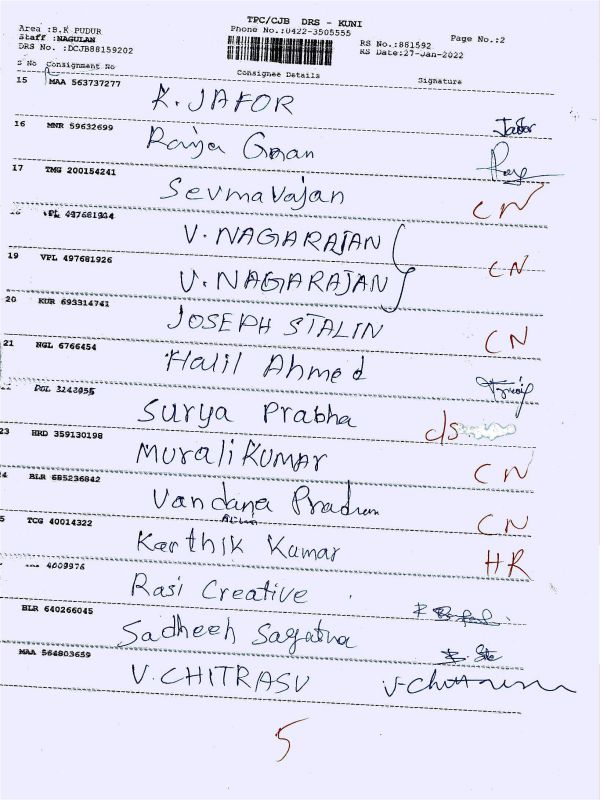 TPC/CJB DRS - KUNI
Area :B.K PUDUR Phone No.:0422-3505555 Page No.:2
Staff :NAGULAN RS No.:881592
DRS No. :DCJB88159202 RS Date:27-Jan-2022
S No Consignment No Consignee Details Signature
15 MAA 563737277 K. JAFOR Jafor
16 MNR 59632699 Raija
17 TMG 200154241 Sevmavajan CN
497681944 V. NAGARAJAN
19 VPL 497681926 V. NAGARAJAN CN
20 KUR 693314741 JOSEPH STALIN CN
21 NGL 6766454 Halil Ahmed
DGL 3243955 Surya Prabha d/s
23 HRD 359130198 Murali KUMAR CN
BLR 685236842 Vandana CN
TCG 40014322 Karthik Kumar HR
4009976 Rasi Creative
BLR 640266045 Sadheeh
MAA 564803659 V. CHITRASU
5